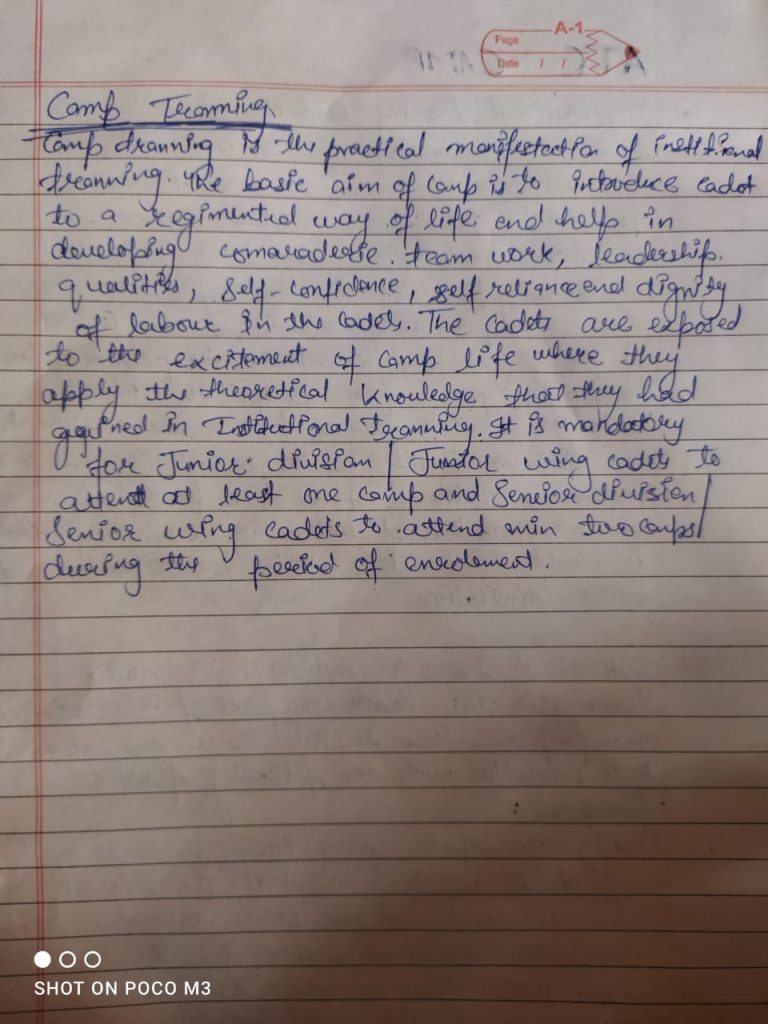 A-1
Page
Date / /
Camp Tranning
Camp dranning is the practical manifestection of institional
treanning. The basic aim of camp is to introduce cadet
to a regimented way of life and help in
developing comaraderie. team work, leadership.
qualities, self-confidence, self reliance and dignity
of labour in the cadets. The cadets are exposed
to the excitement of camp life where they
apply the theoretical knowledge that they had
gained in Institutional Tranning. It is mandatory
for Junior division / Junior wing cadets to
attend at least one camp and Seneior division /
Senior wing cadets to attend min two camps
during the period of enrolement.
SHOT ON POCO M3